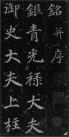 銘并序
銀青光祿大夫
御史大夫上柱